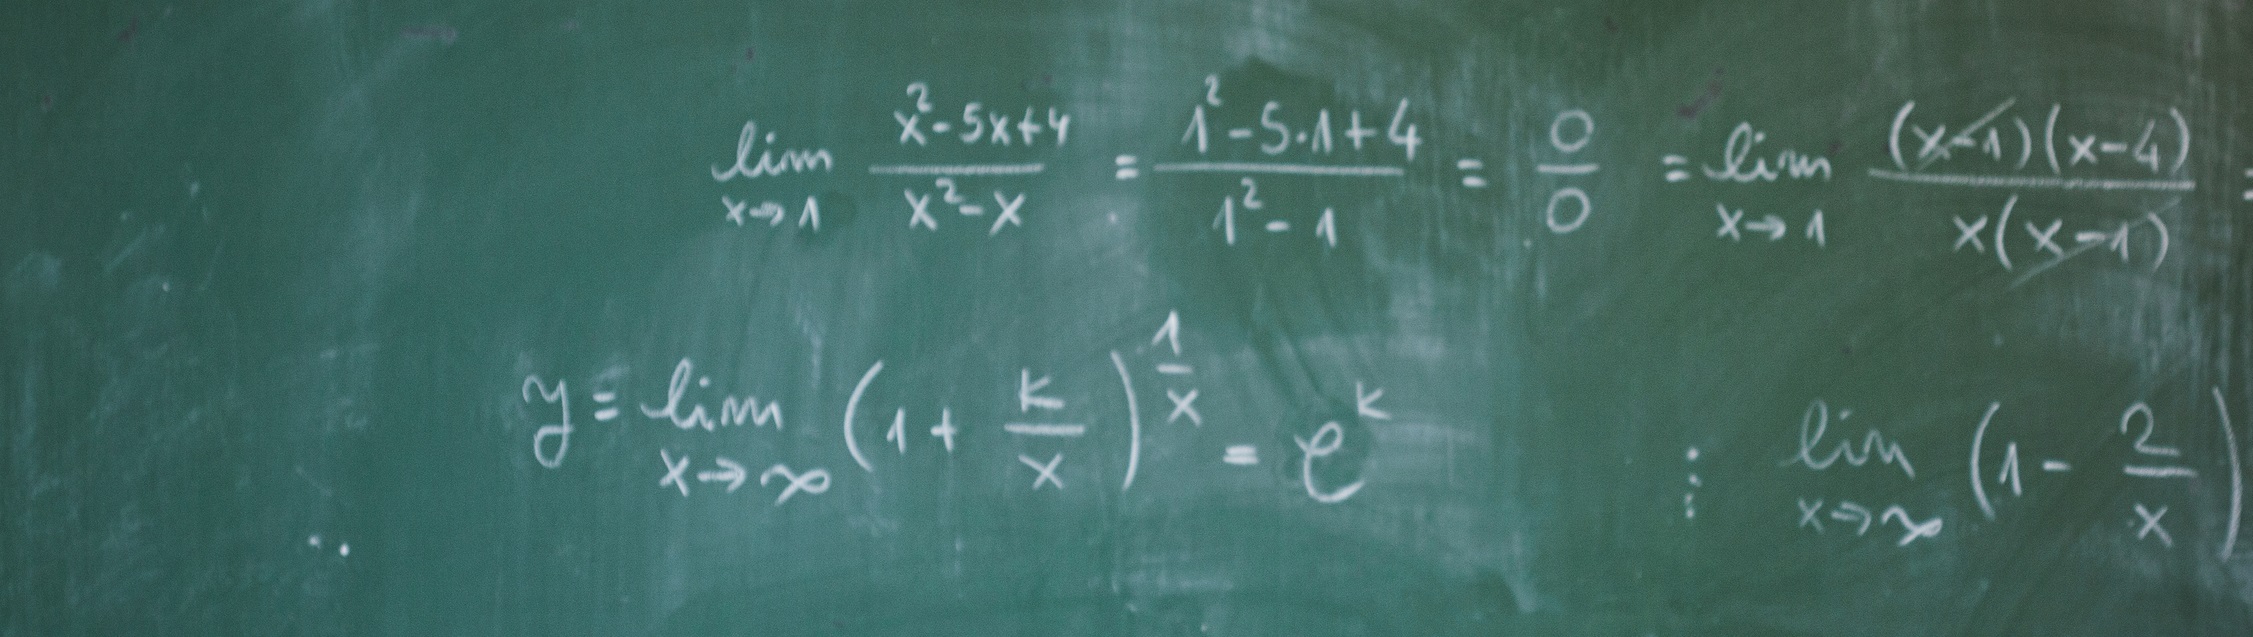 lim x→1 (x²-5x+4)/(x²-x) = (1²-5·1+4)/(1²-1) = 0/0 = lim x→1 ((x-1)(x-4))/(x(x-1)) =
y = lim x→∞ (1 + k/x)^(1/x) = e^k ⋮ lim x→∞ (1 - 2/x)